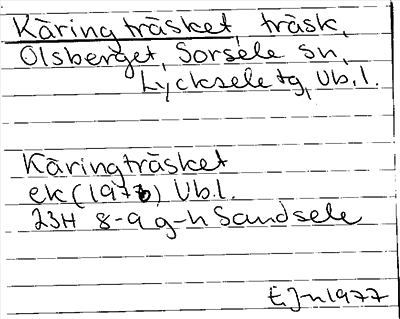 Käringträsket, träsk,
Olsberget, Sorsele sn,
Lycksele tg, Vb. l.
Käringträsket
ek (1976) Vb. l.
23H 8-9 g-h Sandsele
EJn 1977